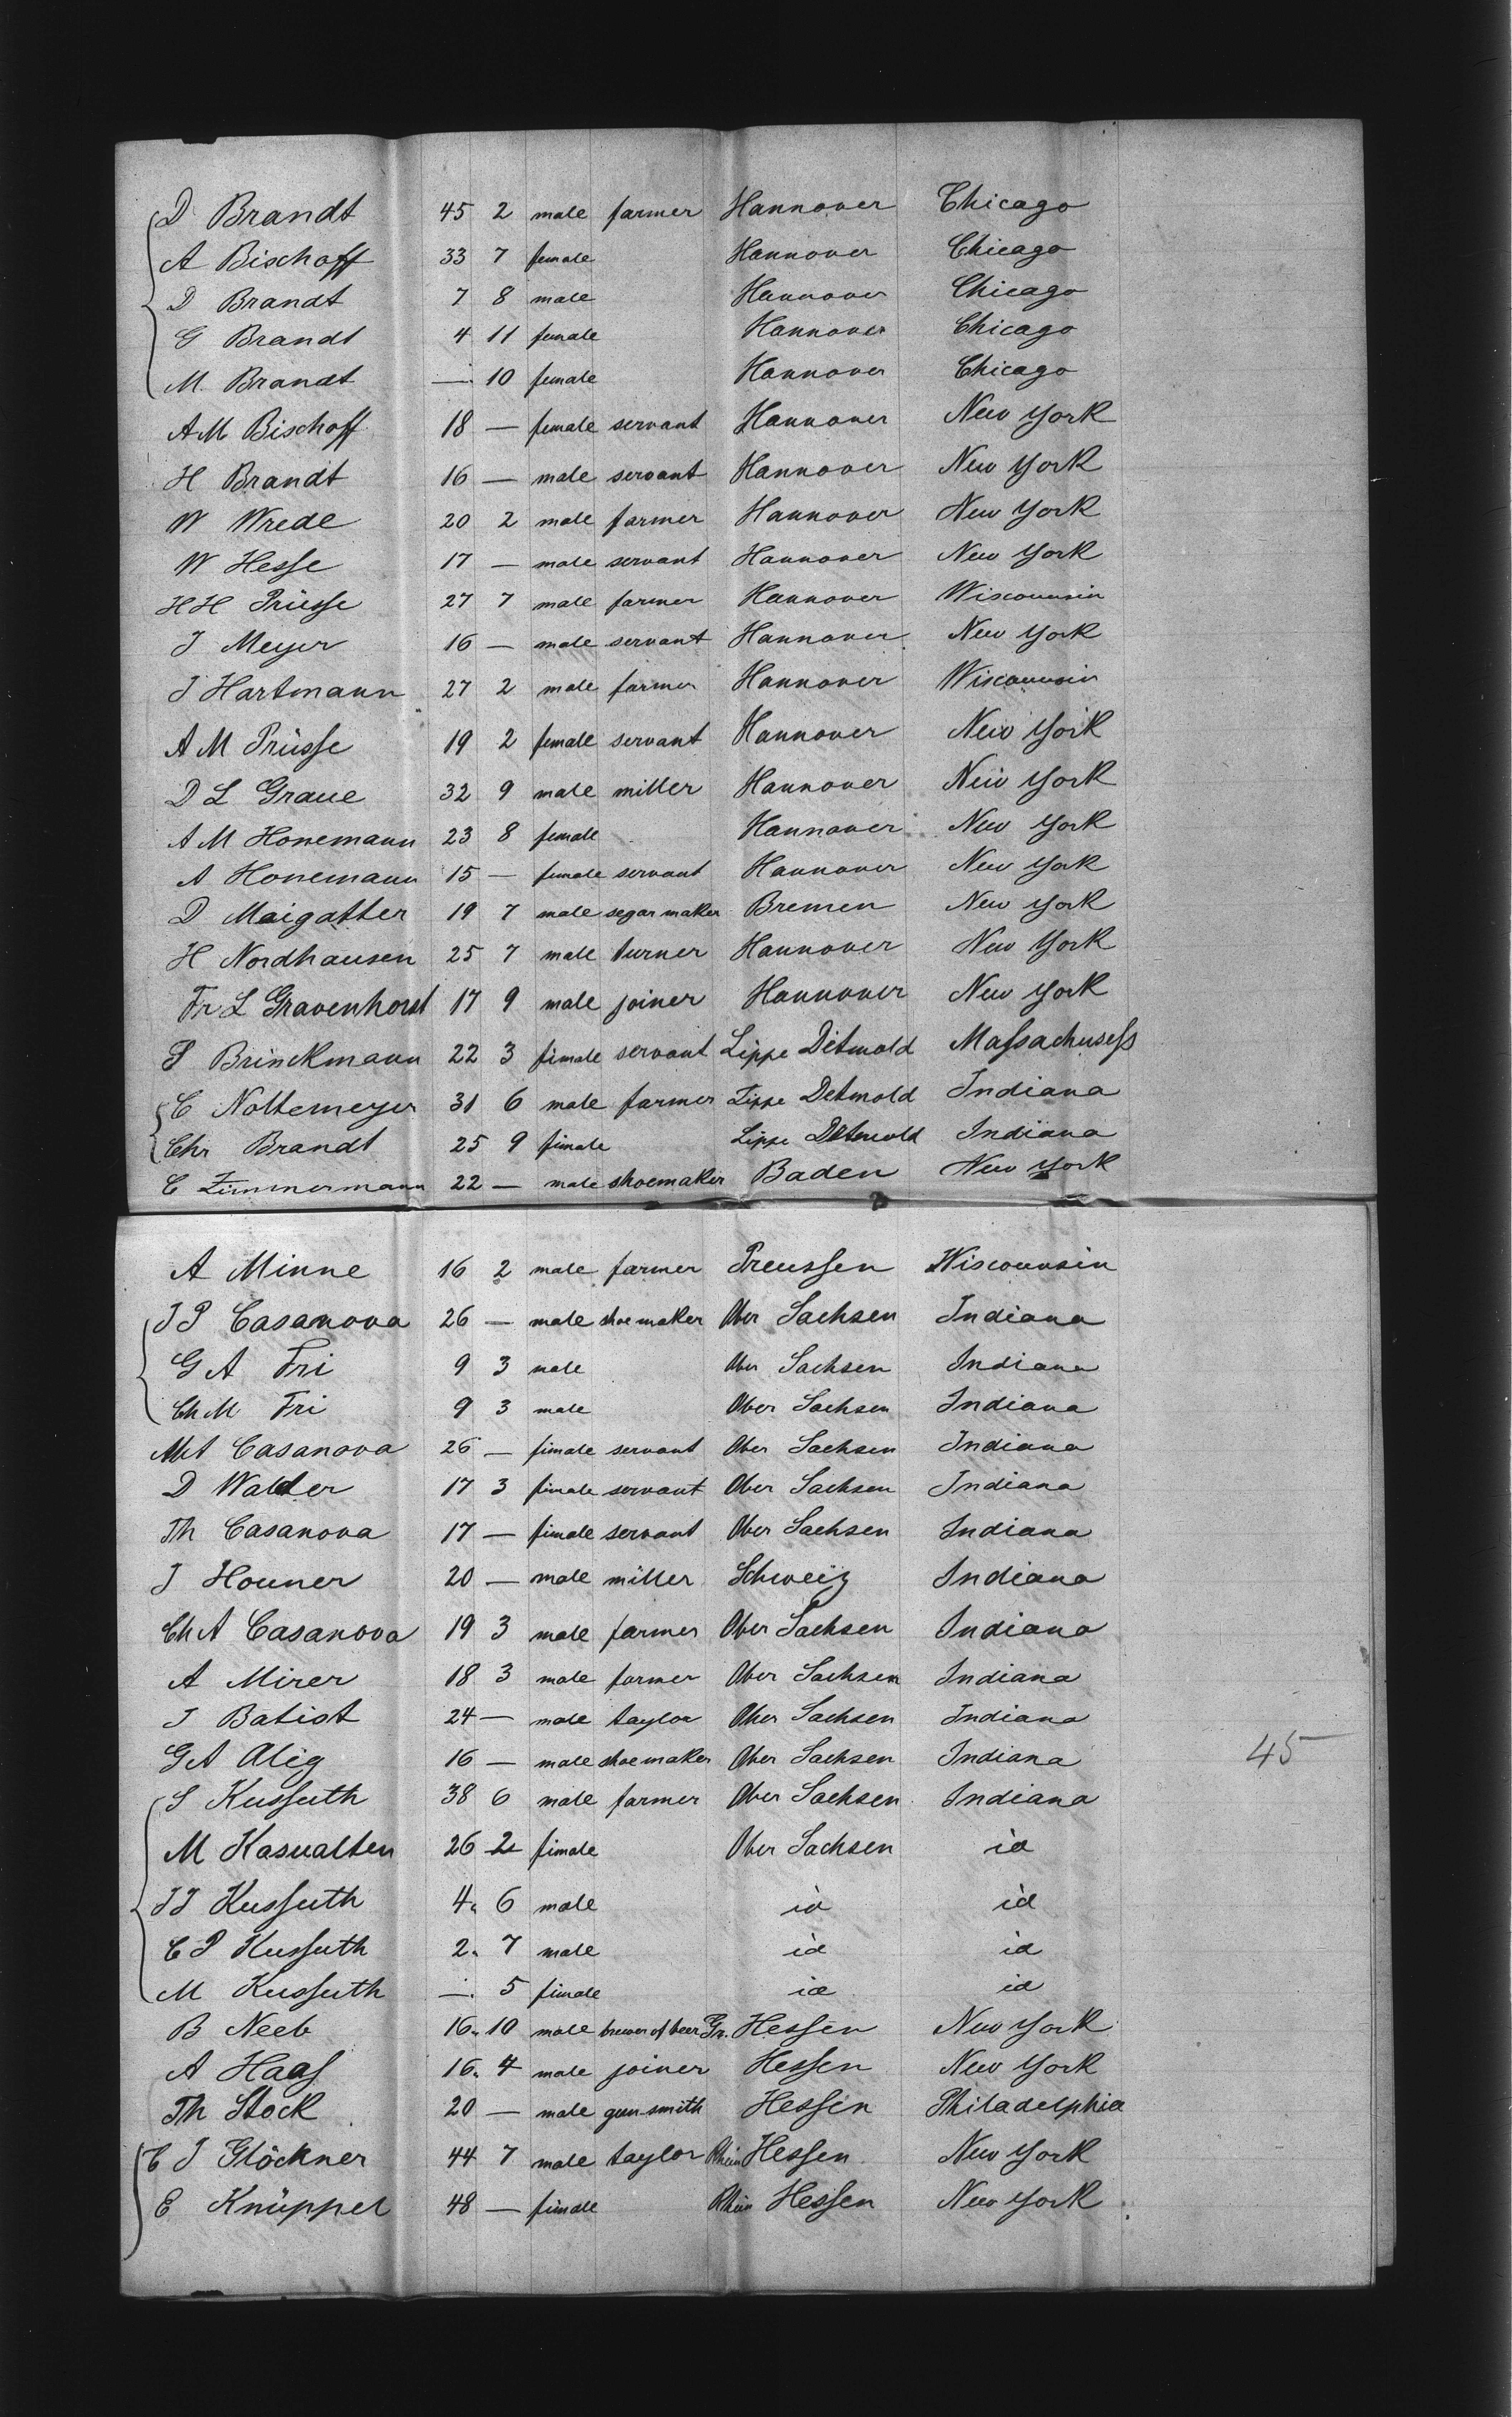 D Brandt 45 2 male farmer Hannover Chicago
A Bischoff 33 7 female Hannover Chicago
D Brandt 7 8 male Hannover Chicago
G Brandt 4 11 female Hannover Chicago
M. Brandt —. 10 female Hannover Chicago
AM Bischoff 18 — female servant Hannover New York
H Brandt 16 — male servant Hannover New York
W Wrede 20 2 male farmer Hannover New York
W Hesse 17 — male servant Hannover New York
HH Prüsse 27 7 male farmer Hannover Wisconnsin
J Meyer 16 — male servant Hannover New York
J Hartmann 27 2 male farmer Hannover Wisconnsin
A M Prüsse 19 2 female servant Hannover New York
D L Graue 32 9 male miller Hannover New York
A M Honemann 23 8 female Hannover New York
A Honemann 15 — female servant Hannover New York
D Maigatter 19 7 male segar maker Bremen New York
H Nordhausen 25 7 male turner Hannover New York
Fr L Gravenhorst 17 9 male joiner Hannover New York
Brinckmann 22 3 fimale servant Lippe Ditmold Massachusess
C Noltemeyer 31 6 male farmer Lippe Detmold Indiana
Chr Brandt 25 9 fimale Lippe Detmold Indiana
C Zimmermann 22 — male shoemaker Baden New York
A Minne 16 2 male farmer Preussen Wisconnsin
J P Casanova 26 — male shoemaker Ober Sachsen Indiana
G A Fri 9 3 male Ober Sachsen Indiana
Ch M Fri 9 3 male Ober Sachsen Indiana
MA Casanova 26 — fimale servant Ober Sachsen Indiana
D Walder 17 3 fimale servant Ober Sachsen Indiana
Th Casanova 17 — fimale servant Ober Sachsen Indiana
J Houner 20 — male miller Schweiz Indiana
Ch A Casanova 19 3 male farmer Ober Sachsen Indiana
A Mirer 18 3 male farmer Ober Sachsen Indiana
J Batist 24 — male taylor Ober Sachsen Indiana
GA Alig 16 — male shoemaker Ober Sachsen Indiana 45
S Kussuth 38 6 male farmer Ober Sachsen Indiana
M Kasualten 26 2 fimale Ober Sachsen id
JJ Kussuth 4. 6 male id id
C P Kussuth 2. 7 male id id
M Kussuth —. 5 fimale id id
B Neeb 16. 10 male brewer of beer Gr. Hessen New York
A Haas 16. 4 male joiner Hessen New York
Th Stock 20 — male gun-smith Hessen Philadelphia
C J Glöckner 44 7 male taylor Rhein Hessen New York
E Knüppel 48 — fimale Rhein Hessen New York